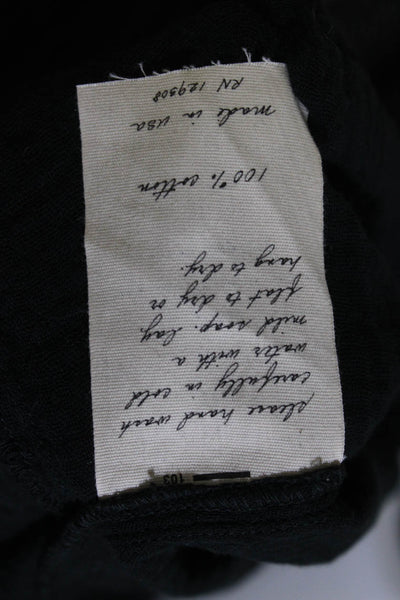 please hand wash
carefully in cold
water with a
mild soap. lay
flat to dry or
hang to dry.
100% cotton
made in usa
RN 129508
103